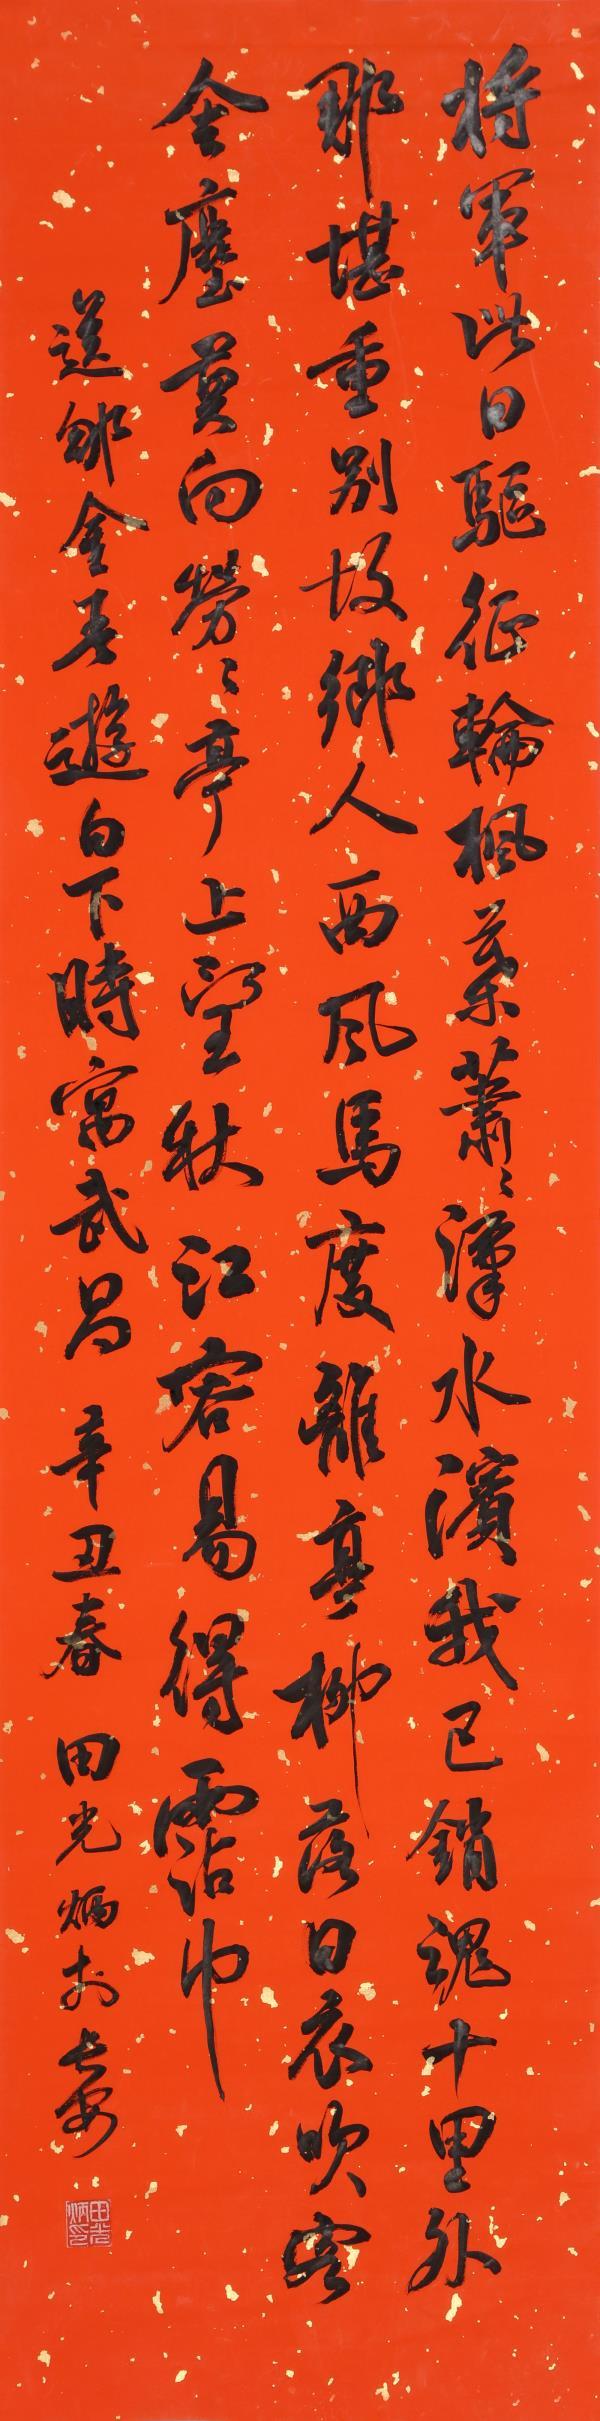 将軍此日驅征輪楓葉蕭〻漢水濱我已銷魂十里外
那堪重别故鄉人西風馬度離亭柳落日衣吹客
舍塵莫向勞〻亭上望秋江容易得霑巾
送鄒金吾遊白下時寓武昌 辛丑春 田光炳於長安
田光炳印